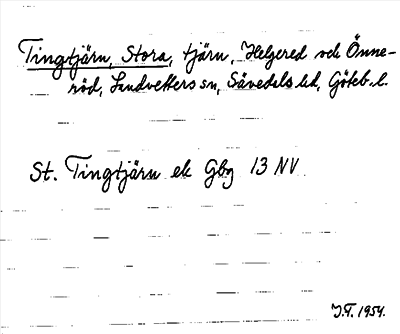 Tingtjärn, Stora, tjärn, Helgered och Önne-
röd, Landvetters sn, Sävedals hd, Göteb. l.
St. Tingtjärn ek Gbg 13 NV
J.T. 1954.